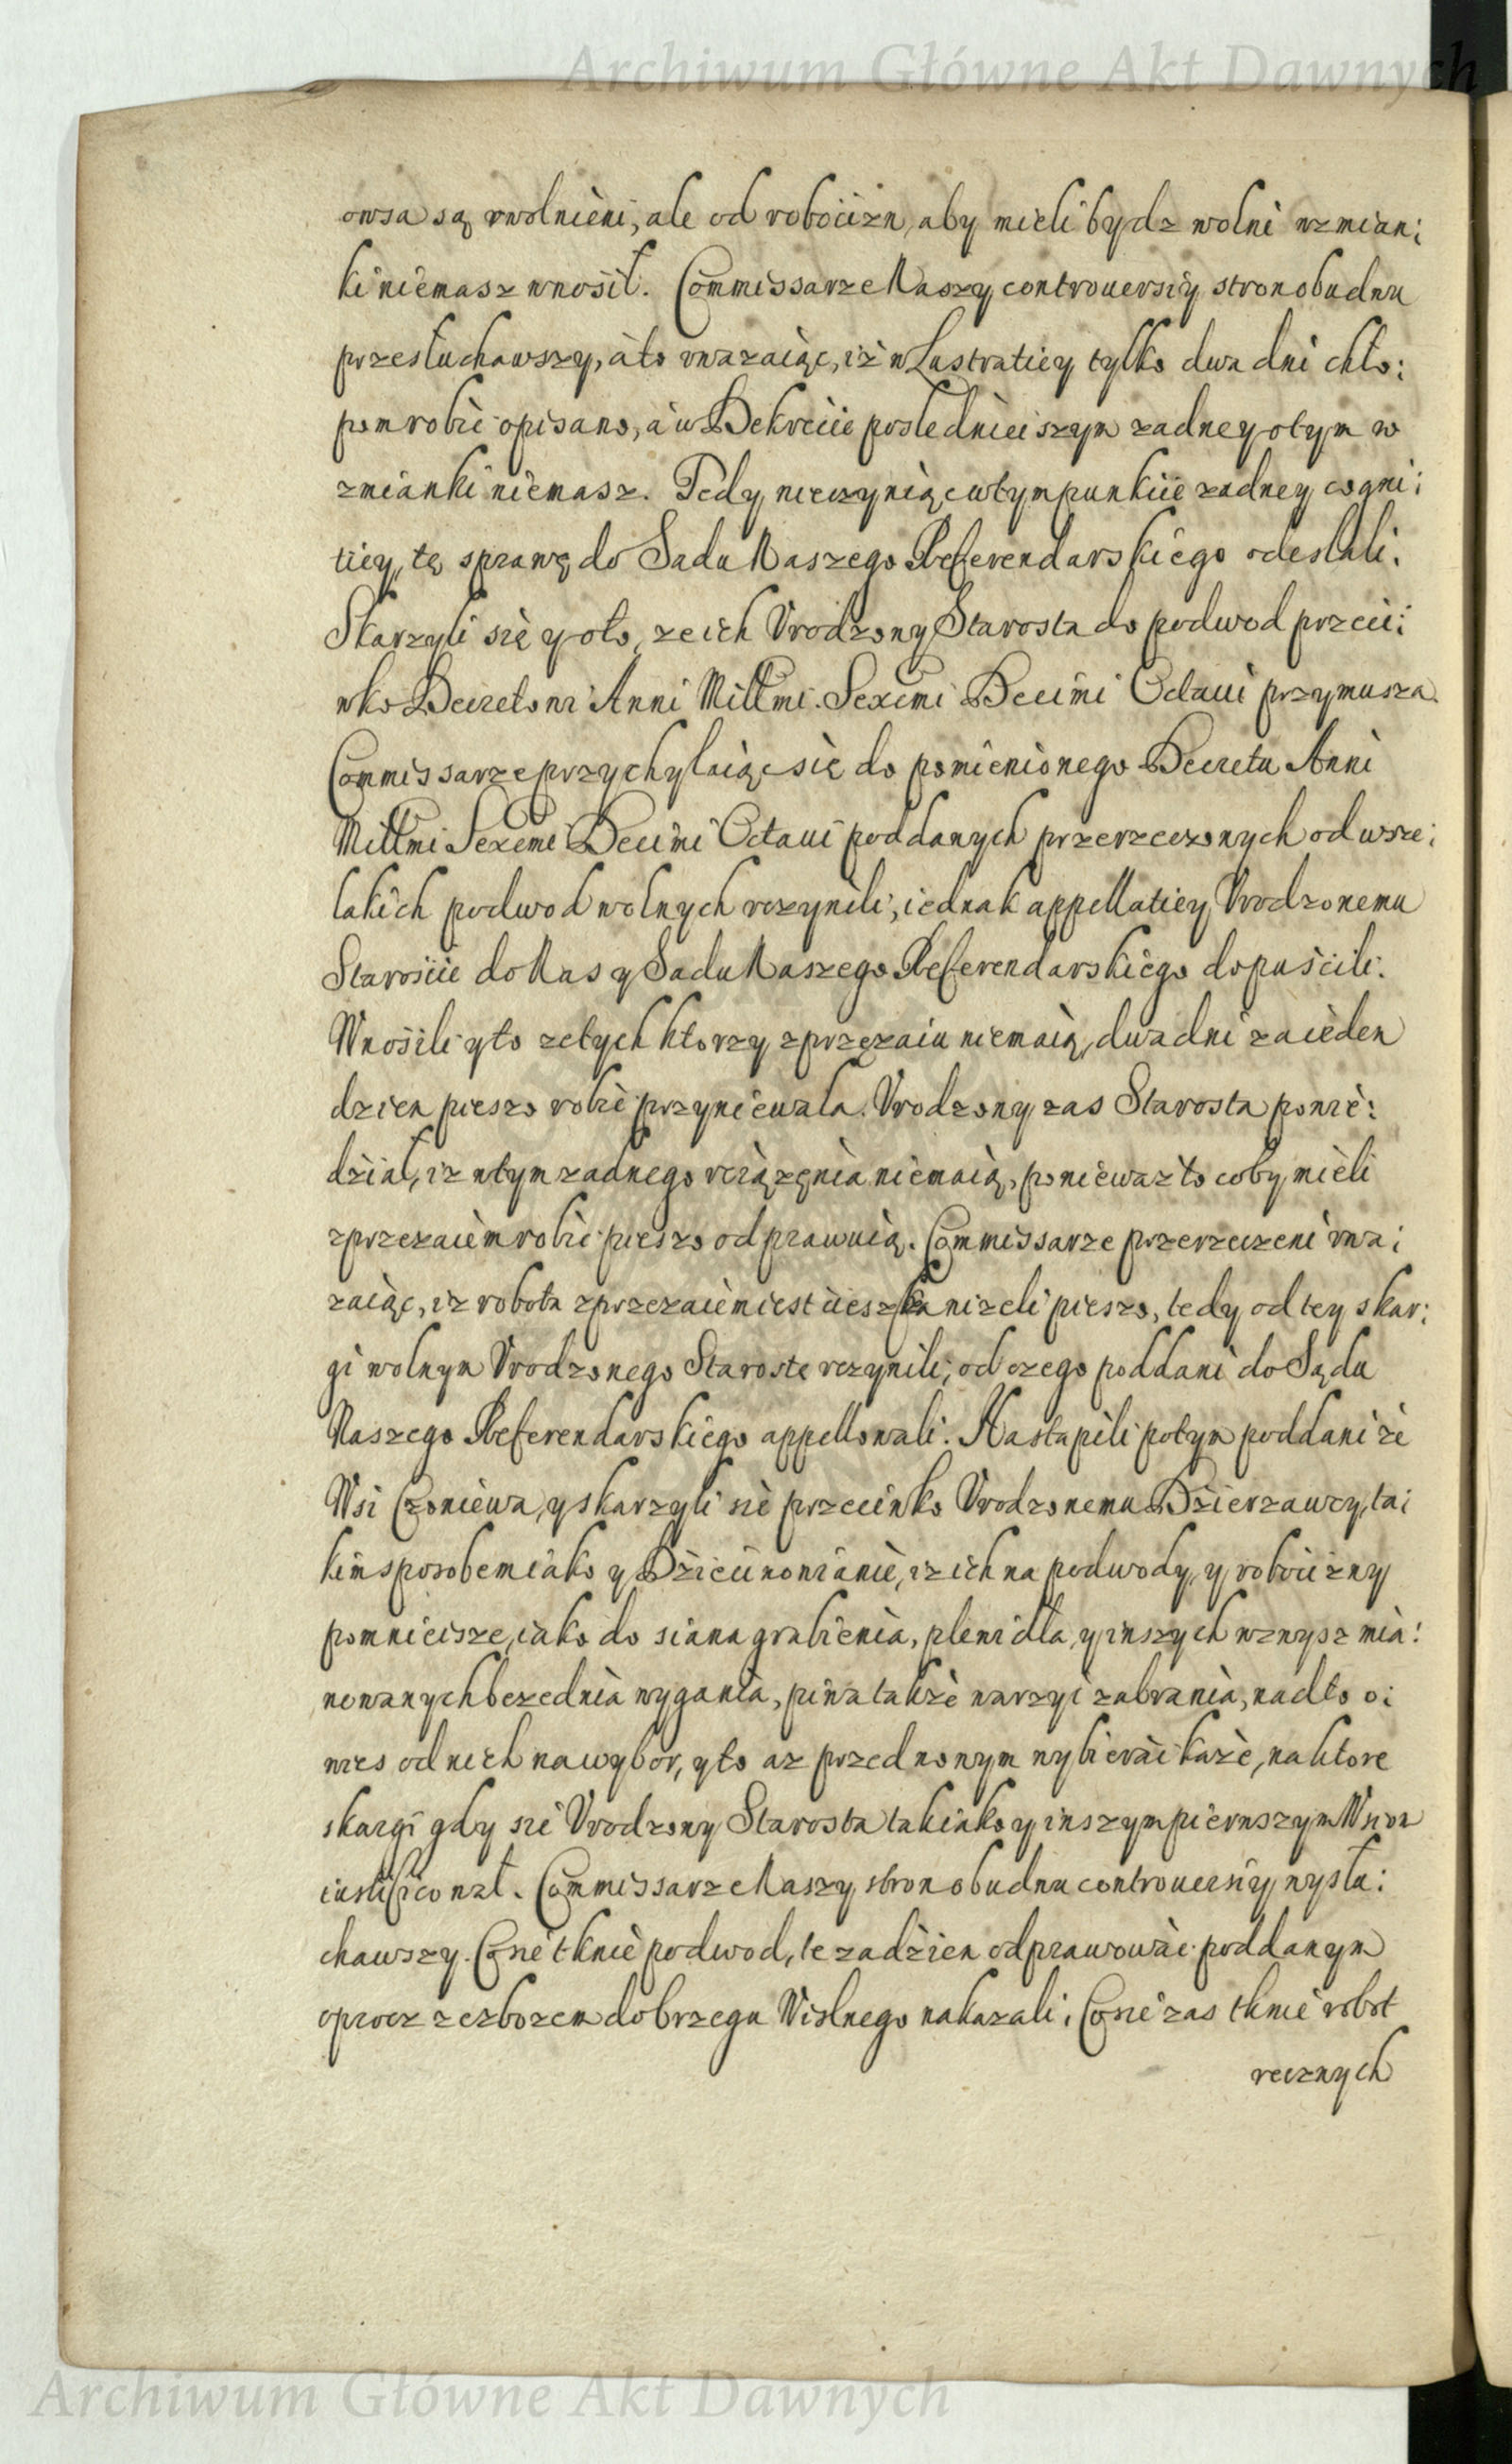 Archiwum Główne Akt Dawnych
owsa są vwolnieni, ale od robocizn, aby mieli bydz wolni wzmian:
ki niemasz wnosił. Commissarze Naszy controuersiy stron obudwu
przesłuchawszy, a to vwazaiąc, iż w Lustratiey tylko dwa dni chło:
pom robic opisano, a w Dekrecie poslednieiszym zadney o tym w
zmianki niemasz. Tedy nieczyniąc w tym punkcie zadney cogni:
tiey, tę sprawę do Sadu Naszego Referendarskiego odeslali.
Skarzyli się y o to, ze ich Vrodzony Starosta do podwod przeci:
wko Decretowi Anni Millmi Sexcmi Decimi Octaui przymusza.
Commissarze przychylaiąc się do pomienionego Decretu Anni
Millmi Sexcmi Decimi Octaui poddanych przerzeczonych od wsze:
lakich podwod wolnych vczynili, iednak appellatiey Vrodzonemu
Staroscie do Nas y Sadu Naszego Referendarskiego dopuscili.
Wnosili y to ze tych ktorzy zprzęzaiu niemaią, dwa dni za ieden
dzien pieszo robic przyniewala. Vrodzony zas Starosta powie:
dział, iz w tym zadnego vciązęnia niemaią, poniewaz to coby mieli
zprzezaiem robic pieszo odprawuią. Commissarze przerzeczeni vwa:
zaiąc, iz robota zprzezaiem iest cieszka nizeli pieszo, tedy od tey skar:
gi wolnym Vrodzonego Staroste vczynili, od czego poddani do Sądu
Naszego Referendarskiego appellowali. Nastapili potym poddani ze
Wsi Czoniewa, y skarzyli sie przeciwko Vrodzonemu Dzierzawcy, ta:
kim sposobem iako y Dziecinowianie, iz ich na podwody, y robocizny
pomnieisze, iako do siana grabienia, plewidła, y inszych wzwysz mia:
nowanych bezednia wygania, piwa takze warzyc zabrania, nadto o:
wies od nich na wybor, y to az przednowym wybierac kaze, na ktore
skargi gdy sie Vrodzony Starosta tak iako y inszym pierwszym Wsiom
iustificował. Commissarze Naszy stron obudwu controuersiy wysłu:
chawszy. Co sie tknie podwod, te zadzien odprawowac poddanym
oprocz zezbozem do brzegu Wislnego nakazali, Co sie zas tknie robot
recznych
Archiwum Główne Akt Dawnych